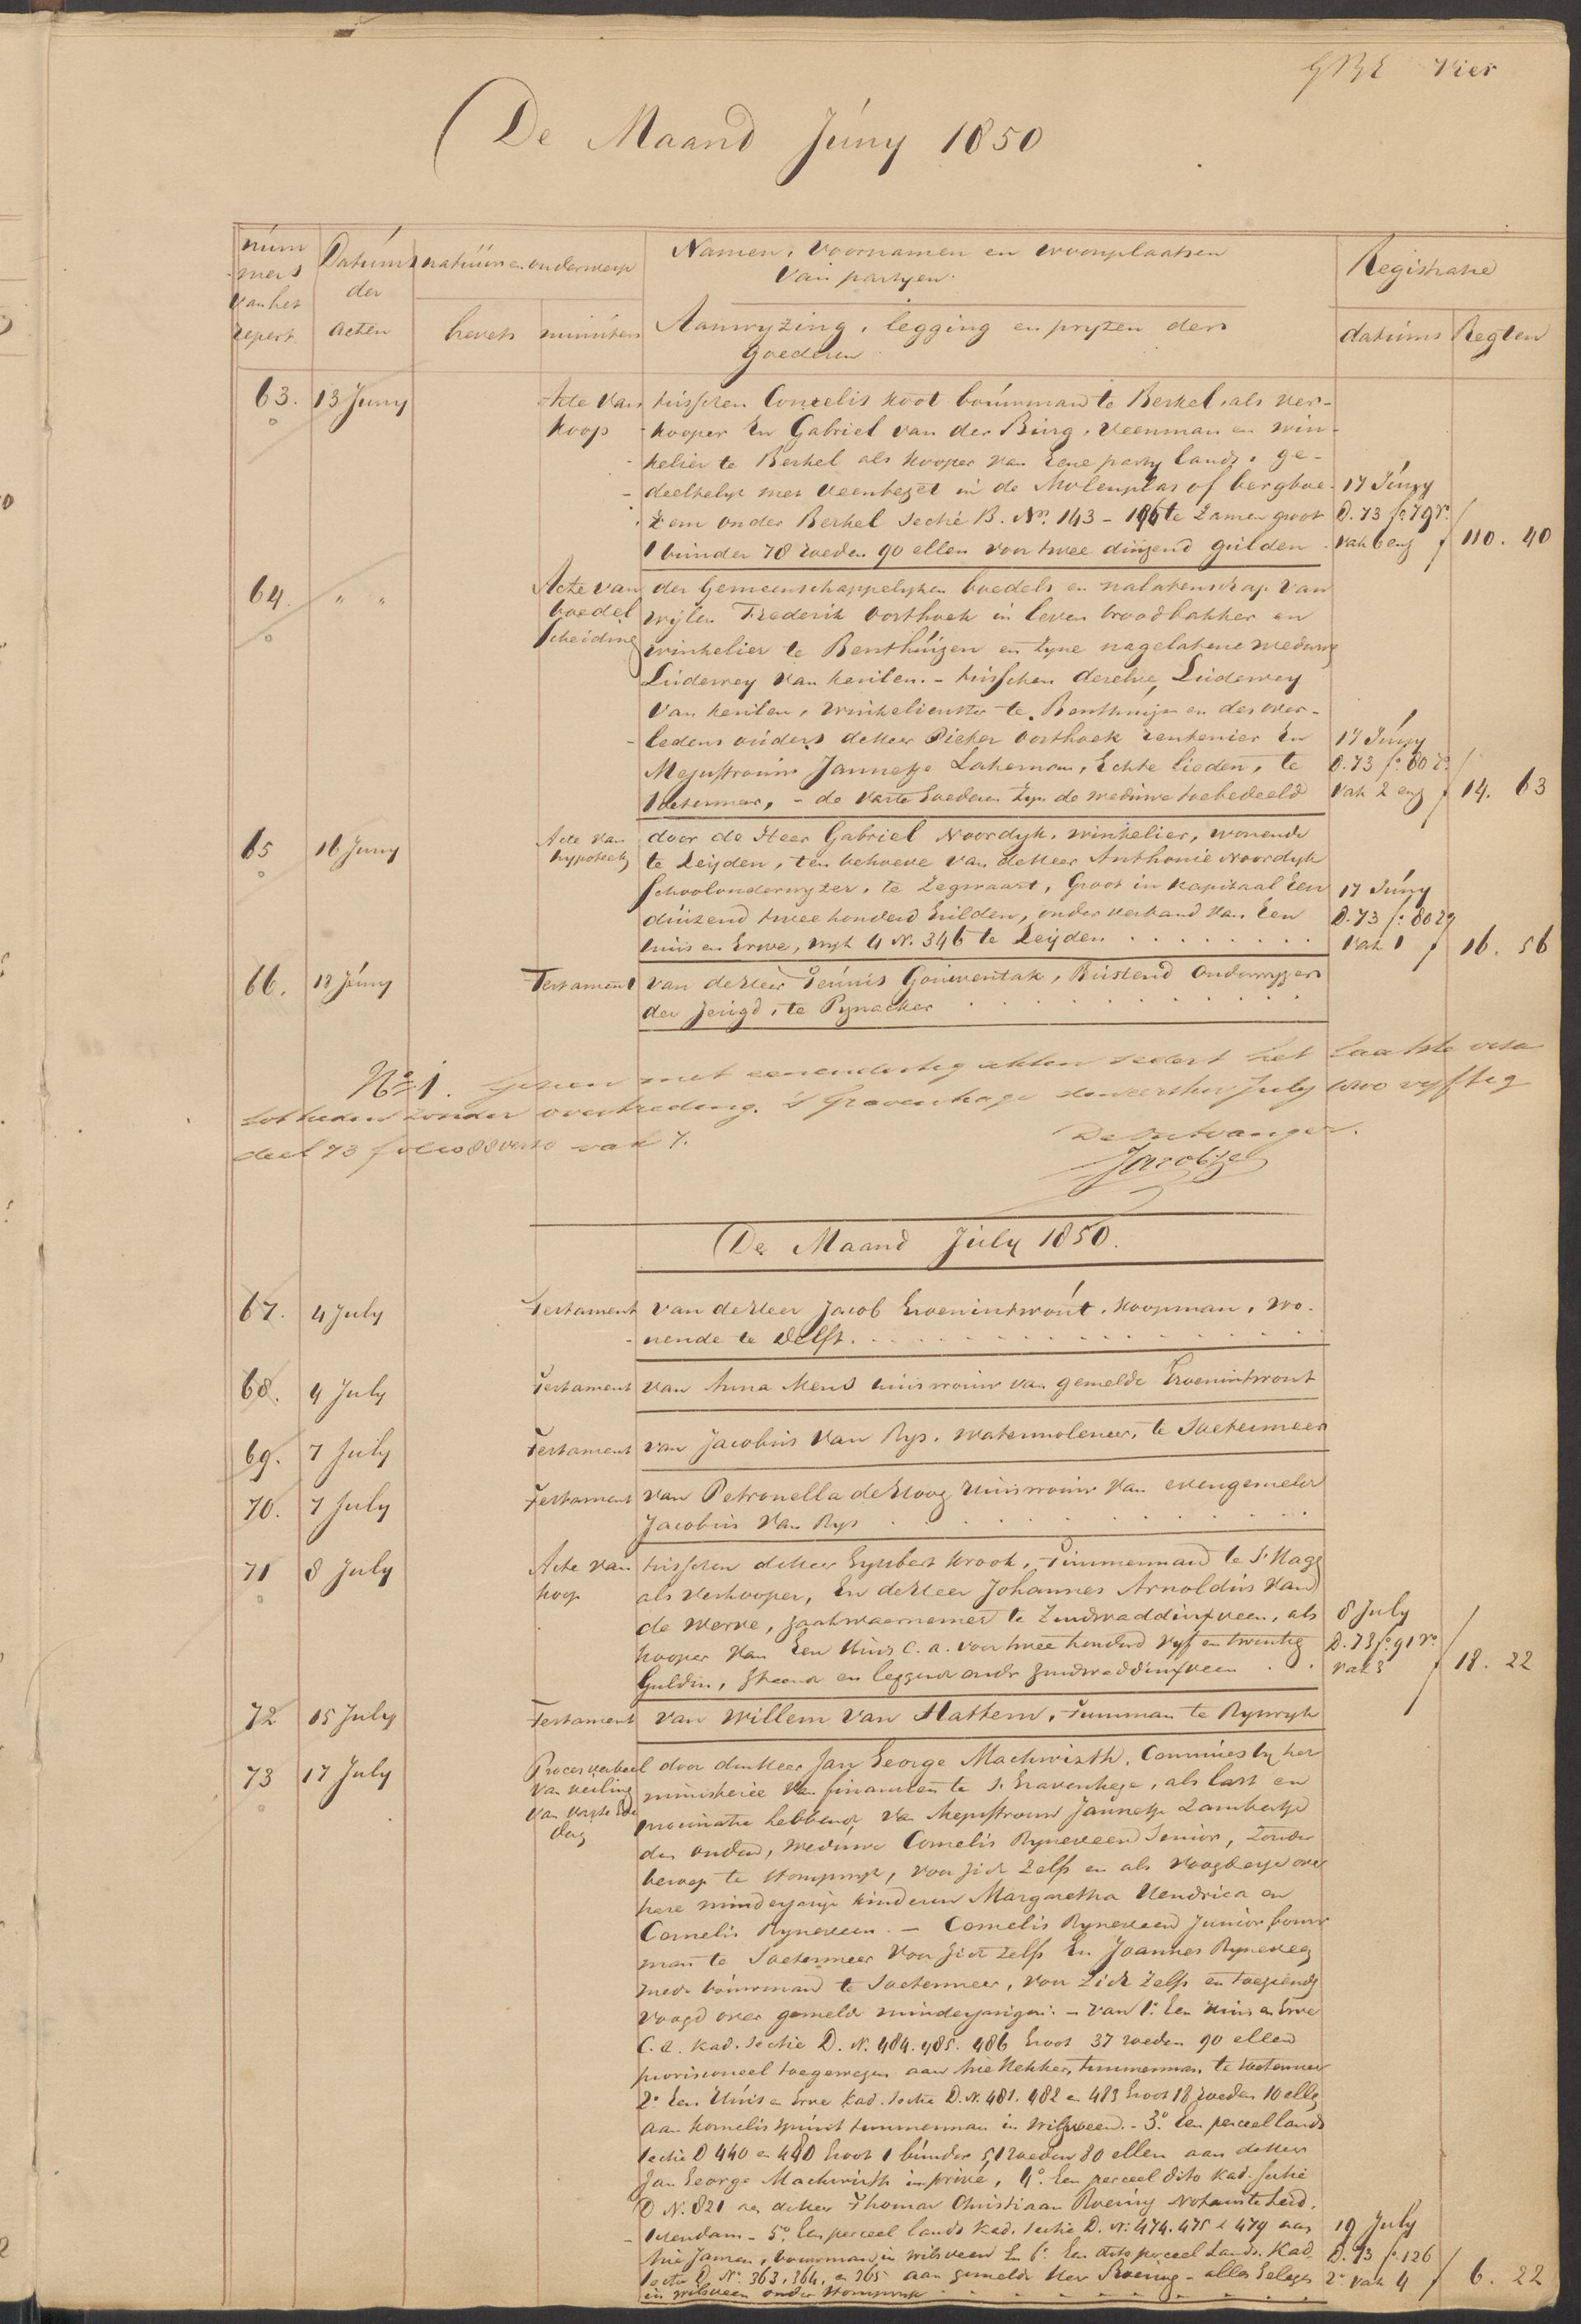 Vier
De Maand Júny 1850
núm
mers
van het
repert.
Datúms
der
acten
natúúr en onderwerp
brevets
minúten
Namen, voornamen en woonplaatsen
van partyen.
Aanwyzing, legging en pryzen der
goederen
Registratie
datúms
Regten
63. 13 Juny
Acte van
koop
tusschen Cornelis Koot boúwman te Berkel, als ver-
kooper En Gabriel van der Búrg, veenman en win-
kelier te Berkel als kooper van Eene party lands, ge-
deeltelyk met veen bezet in de Molenplas of bergboe-
zem onder Berkel Sectie B. No. 143 - 196 te zamen groot
1 búnder 78 roeden 90 ellen voor twee dúizend gúlden
17 Júny
D. 73 fo. 79 ro.
vak 6 enz
110. 40
64. " "
Acte van
boedel
scheiding
der Gemeenschappelyken boedels en nalatenschap van
wijlen Frederik Oosthoek in leven broodbakker en
winkelier te Benthúizen en zyne nagelatene weduwe
Lúdewey van Keúlen. - tússchen dezelve, Lúdewey
van Keúlen, winkelierster te Benthuizen en des over-
ledens oúders de Heer Pieter Oosthoek rentenier En
Mejuffroúw Jannetje Lakeman, Echte lieden, te
Soetermeer, - de vaste Goederen zyn de weduwe toebedeeld
17 Júny
D. 73 fo. 80 ro.
vak 2 enz
14. 63
65 16 Juny
Acte van
hypotheek
door de Heer Gabriel Noordyk, winkelier, wonende
te Leijden, ten behoeve van de Heer Anthonie Noordyk
Schoolonderwyzer, te Zegwaart, Groot in kapitaal Een
dúizend twee honderd Gúlden, onder verband van Een
húis en Erve, wyk 4 N. 346 te Leijden
17 Júny
D. 73 fo. 80
vak 1
16. 56
66. 18 Júny
Testament
van de Heer Teúnis Goúwentak, Rústend Onderwyzer
der Jeúgd, te Pynacker
No. 1. Gezien met eenendertig akten sedert het laatste visa
tot heden zonder overtreding. 's Gravenhage den eersten July 1800 vyftig
deel 73 folio 88 verso vak 7.
De Ontvanger.
De Maand Júly 1850.
67. 4 July
Testament
van de Heer Jacob Groenintwoút, Koopman, wo-
nende te Delft.
68. 4 July
Testament
van Anna Mens húisvrouw van gemelde Groenintwout
69. 7 July
Testament
van Jacobús van Rys, watermolenaar, te Soetermeer
70. 7 July
Testament
van Petronella de Hoog Húisvroúw van evengemelde
Jacobús van Rys
71 8 July
Acte van
koop
tússchen de Heer Gysbert Krook, Timmerman te S'Hage
als Verkooper, En de Heer Johannes Arnoldús van
de Werve, zaakwaarnemer te Zuidwaddinxveen, als
kooper van Een Húis c. a. voor twee honderd vyf en twintig
Gulden, staande en leggende onder Zuidwaddinxveen
8 July
D. 73 fo. 91 ro.
vak 3
18. 22
72 15 July
Testament
van Willem van Hattem, Tuinman te Ryswyk
73 17 July
Proces verbaal
van veiling
van vaste Goe
deren
door den Heer Jan George Mackwirth, Commies by het
ministerie van financien te 's Gravenhage, als last en
procuratie hebbende van Mejuffrouw Jannetje Lambertje
den Ouden, weduwe Cornelis Ryneveen Senior, zonder
beroep te Stompwyk, voor zich zelf en als Voogdesse over
hare minderjarige kinderen Margaretha Hendrica en
Cornelis Ryneveen. - Cornelis Ryneveen Junior bouw
man te Soetermeer voor zich zelf En Joannes Ryneveen
mede boúwman te Soetermeer, voor zich zelf en toeziend
voogd over gemelde minderjarigen. - van 1o. Een Húis en Erve
C. a. kad. Sectie D. N. 484. 485. 486 Groot 37 roeden 90 ellen
provisioneel toegewezen aan Arie Hekker, timmerman, te Soetermeer
2o Een Húis en Erve kad. Sectie D. N. 481. 482 en 483 Groot 18 roeden 10 ellen
aan Kornelis Spruit timmerman in Wilsveen. - 3o. Een perceel lands
Sectie D 440 en 480 Groot 1 búnder 51 roeden 80 ellen aan de Heer
Jan George Mackwirth in privé, 4o. Een perceel dito kad. Sectie
D N. 821 aan de Heer Thomas Christiaan Roering Notaris te Leid.
schendam - 5o. Een perceel lands kad. Sectie D. N. 474. 475 & 479 aan
Arie Jansen, bouwman in Wilsveen En 6o. Een dito perceel Lands. Kad.
Sectie D. No. 363, 364, en 365 aan gemelde Heer Roering - alles Gelegen
in Wilsveen onder Stompwyk
19 July
D. 73 fo. 126
2o. vak 4
6. 22